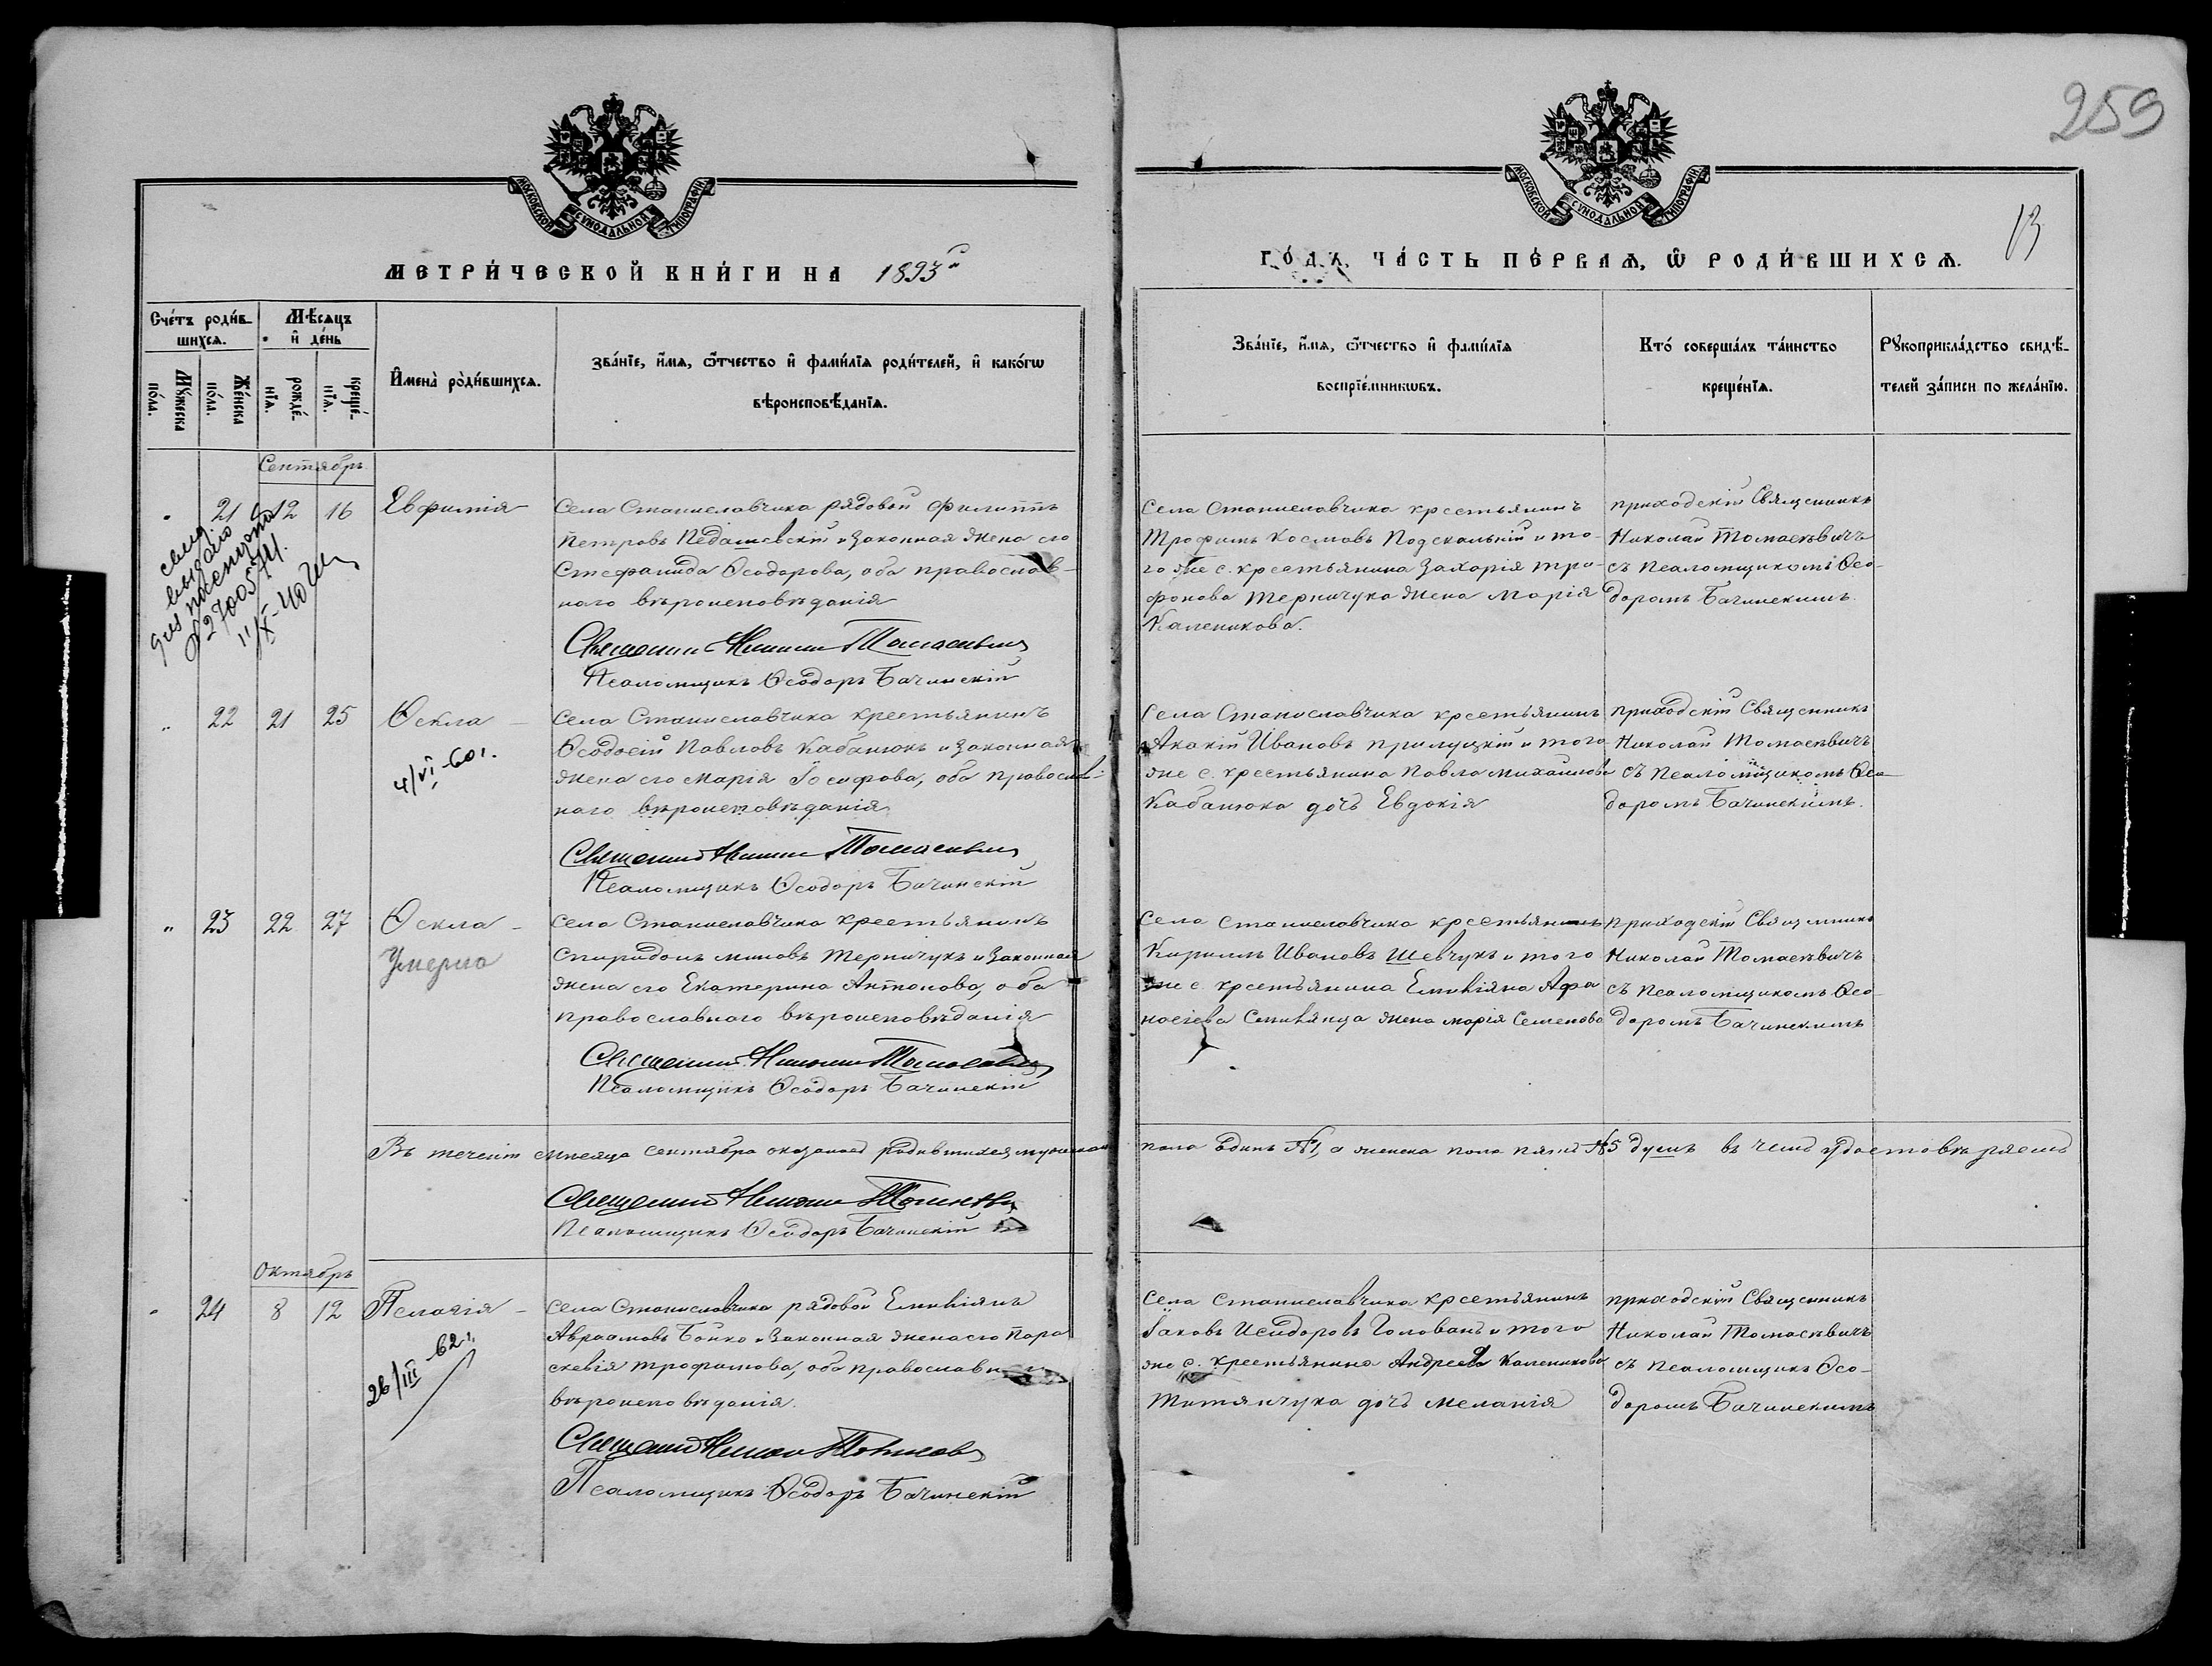 259
13
МОСКОВСКОЙ СѴНОДАЛЬНОЙ ТИПОГРАФІИ
МОСКОВСКОЙ СѴНОДАЛЬНОЙ ТИПОГРАФІИ
МЕТРИ́ЧЕСКОЙ КНИ́ГИ НА 1893й
ГО́ДЪ, ЧА́СТЬ ПЕ́РВАѦ, Ѿ РОДИ́ВШИХСѦ.
Сче́тъ роди́в-
шихсѧ.
Мѣ́сѧцъ
и҆ де́нь
Мꙋ́жеска
по́ла.
Же́нска
по́ла.
рожде́-
нїѧ.
креще́-
нїѧ.
И҆мена̀ роди́вшихсѧ.
Зва́нїе, и҆́мѧ, ѻ҆́тчество и҆ фами́лїѧ роди́телей, и҆ како́гѡ
вѣроисповѣ́данїѧ.
Зва́нїе, и҆́мѧ, ѻ҆́тчество и҆ фами́лїѧ
воспрїе́мникѡвъ.
Кто́ соверша́лъ та́инство
креще́нїѧ.
Рꙋкоприкла́дство свидѣ́-
телей за́писи по жела́нїю.
Сентябрь
" 21 12 16 Евфимія
Села Станиславчика рядовой Филиппъ
Петровъ Педашевскій и законная жена его
Стефанида Ѳеодорова, оба православ-
наго вѣроисповѣданія
Священникъ Николай Томасевичъ
Псаломщикъ Ѳеодоръ Бачинскій
Села Станиславчика крестьянинъ
Трофимъ Космовъ Подскальній и то-
го же с. крестьянина Захарія Тро-
фонова Терничука жена Марія
Каленикова.
приходскій Священникъ
Николай Томасевичъ
съ псаломщикомъ Ѳео-
доромъ Бачинскимъ.
выдано
№ 2700574.
11/X-40
" 22 21 25 Ѳекла
4/VI-60 г.
Села Станиславчика крестьянинъ
Ѳеодосій Павловъ Кабанюкъ и законная
жена его Марія Іосифова, оба православ-
наго вѣроисповѣданія
Священникъ Николай Томасевичъ
Псаломщикъ Ѳеодоръ Бачинскій
Села Станиславчика крестьянинъ
Акакій Ивановъ Прилуцкій и того
же с. крестьянина Павла Михаилова
Кабанюка дочь Евдокія
приходскій Священникъ
Николай Томасевичъ
съ псаломщикомъ Ѳео-
доромъ Бачинскимъ.
" 23 22 27 Ѳекла
Умерла
Села Станиславчика крестьянинъ
Спиридонъ Миновъ Терничукъ и законная
жена его Екатерина Антонова, оба
православнаго вѣроисповѣданія
Священникъ Николай Томасевичъ
Псаломщикъ Ѳеодоръ Бачинскій
Села Станиславчика крестьянинъ
Кириллъ Ивановъ Шевчукъ и того
же с. крестьянина Емиліяна Афа
насіева жена Марія Семенова
приходскій Священникъ
Николай Томасевичъ
съ псаломщикомъ Ѳео-
доромъ Бачинскимъ
Въ теченіи мѣсяца сентября оказалось родившихся мужеска
пола Одинъ №1, а женска пола пять №5 душъ въ чемъ удостовѣряемъ
Священникъ Николай Томасевичъ
Псаломщикъ Ѳеодоръ Бачинскій
Октябрь
" 24 8 12 Пелагія
26/III-62 г.
Села Станиславчика рядовой Емиліянъ
Авраамовъ Бойко и законная жена его Пара
скевія Трофимова, оба православнаго
вѣроисповѣданія.
Священникъ Николай Томасевичъ
Псаломщикъ Ѳеодоръ Бачинскій
Села Станиславчика крестьянинъ
Іаковъ Исидоровъ Голованъ и того
же с. крестьянина Андрея Каленикова
Титянчука дочь Меланія
приходскій Священникъ
Николай Томасевичъ
съ псаломщикъ Ѳео-
доромъ Бачинскимъ